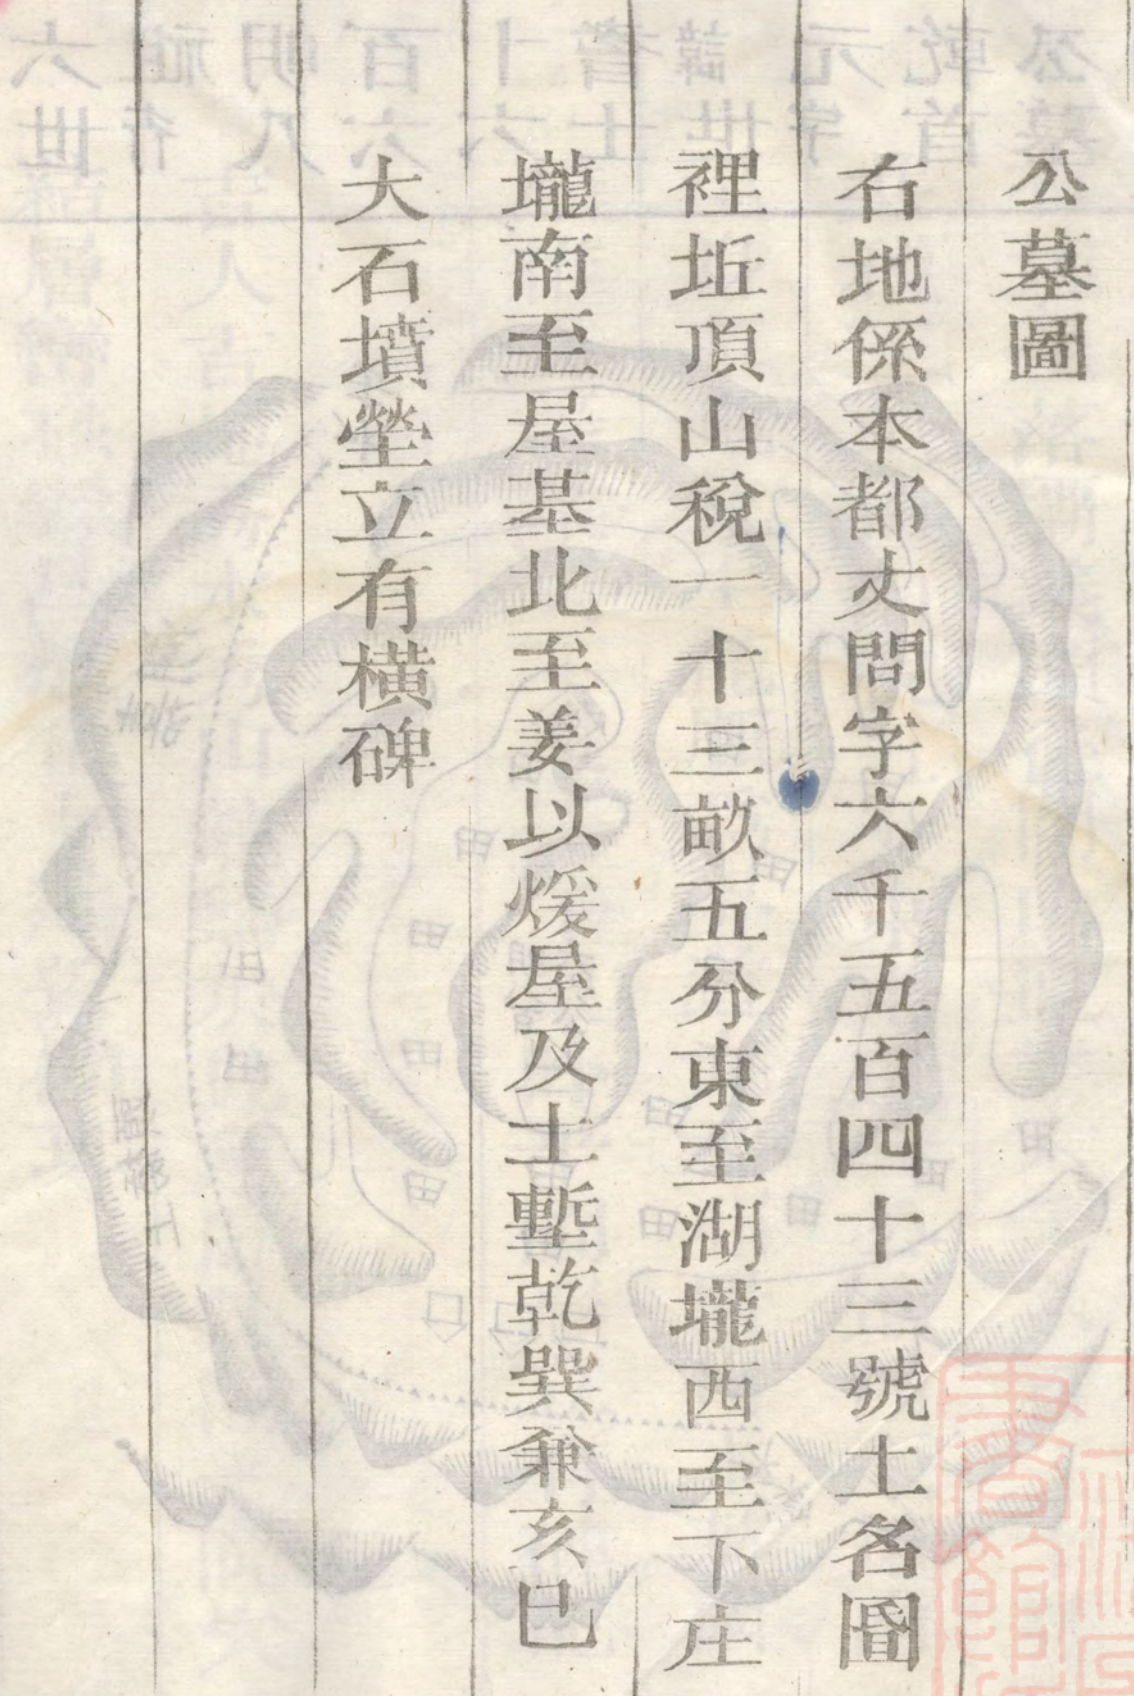 公墓圖
右地係本都丈問字六千五百四十三號土名圖
裡坵頂山稅一十三畝五分東至湖壠西至下庄
壠南至屋基北至姜以煖屋及土塹乾巽兼亥巳
大石墳塋立有橫碑